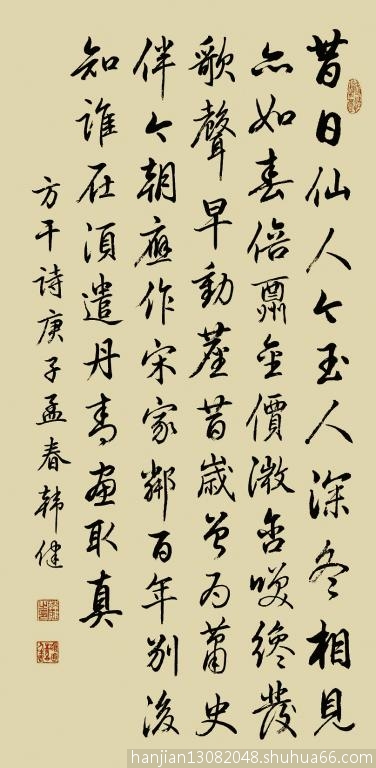 昔日仙人今玉人深冬相見
亦如春倍酬金價微含咲纔發
歌聲早動塵昔歲曾为蕭史
伴今朝應作宋家鄰百年別後
知誰在須遣丹青畫取真
方干詩庚子孟春韩健
hanjian13082048.shuhua66.com